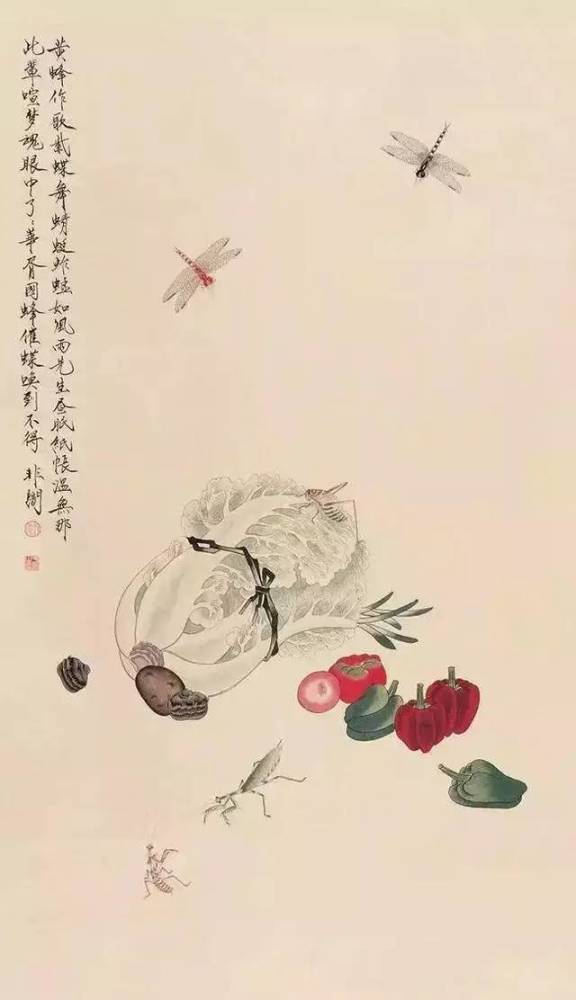 黄蜂作歌紫蝶舞蜻蜓蚱蜢如風雨先生昼眠紙帳温無那
此輩喧梦魂眼中了〻華胥國蜂催蝶喚到不得 非闇